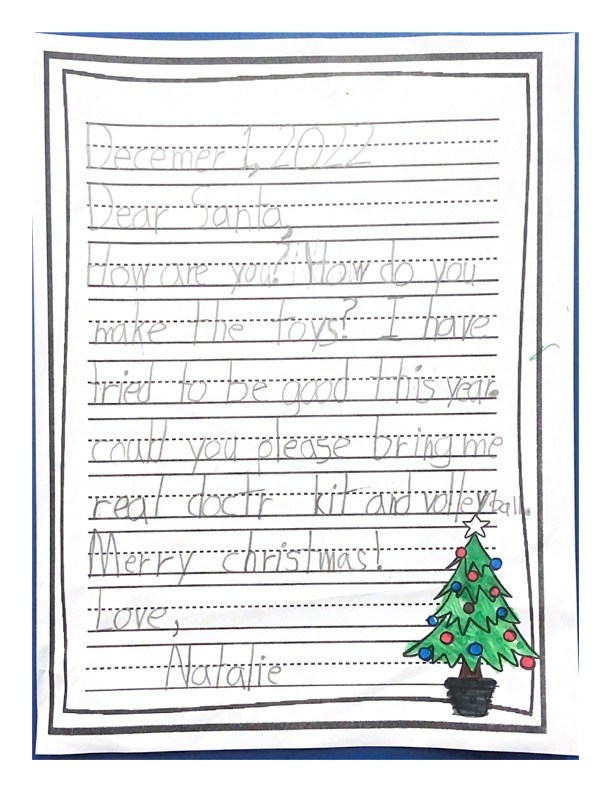 Decemer 1, 2022
Dear Santa,
How are you? How do you
make the toys? I have
tried to be good this year.
could you please bring me
real doctr kit and volleyball.
Merry christmas!
Love,
Natalie